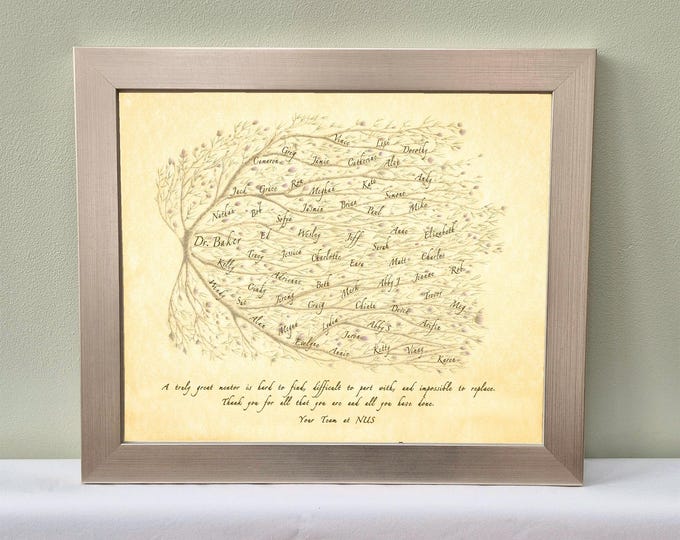 Vince Lisa
Greg Dorothy
Cameron Jamie Catherine Alex
Jack Grace Ron Meghan Kate Andy
Simone
Nathan Bob Jasmin Brian Paul Mike
Sofia
Dr. Baker Ed Wesley Jeff Anne Elizabeth
Sarah
Kelly Tracy Jessica Charlotte Matt Charles
Ezra
Adrienne Beth Abby J Jeanne Rob
Wendy Cindy Mark Trevor
Sue Craig David Meg
Alan Megan Lydia Abby S
Jason
Evelynn Annie Kitty Vinny Karen
A truly great mentor is hard to find, difficult to part with, and impossible to replace.
Thank you for all that you are and all you have done.
Your Team at NUS